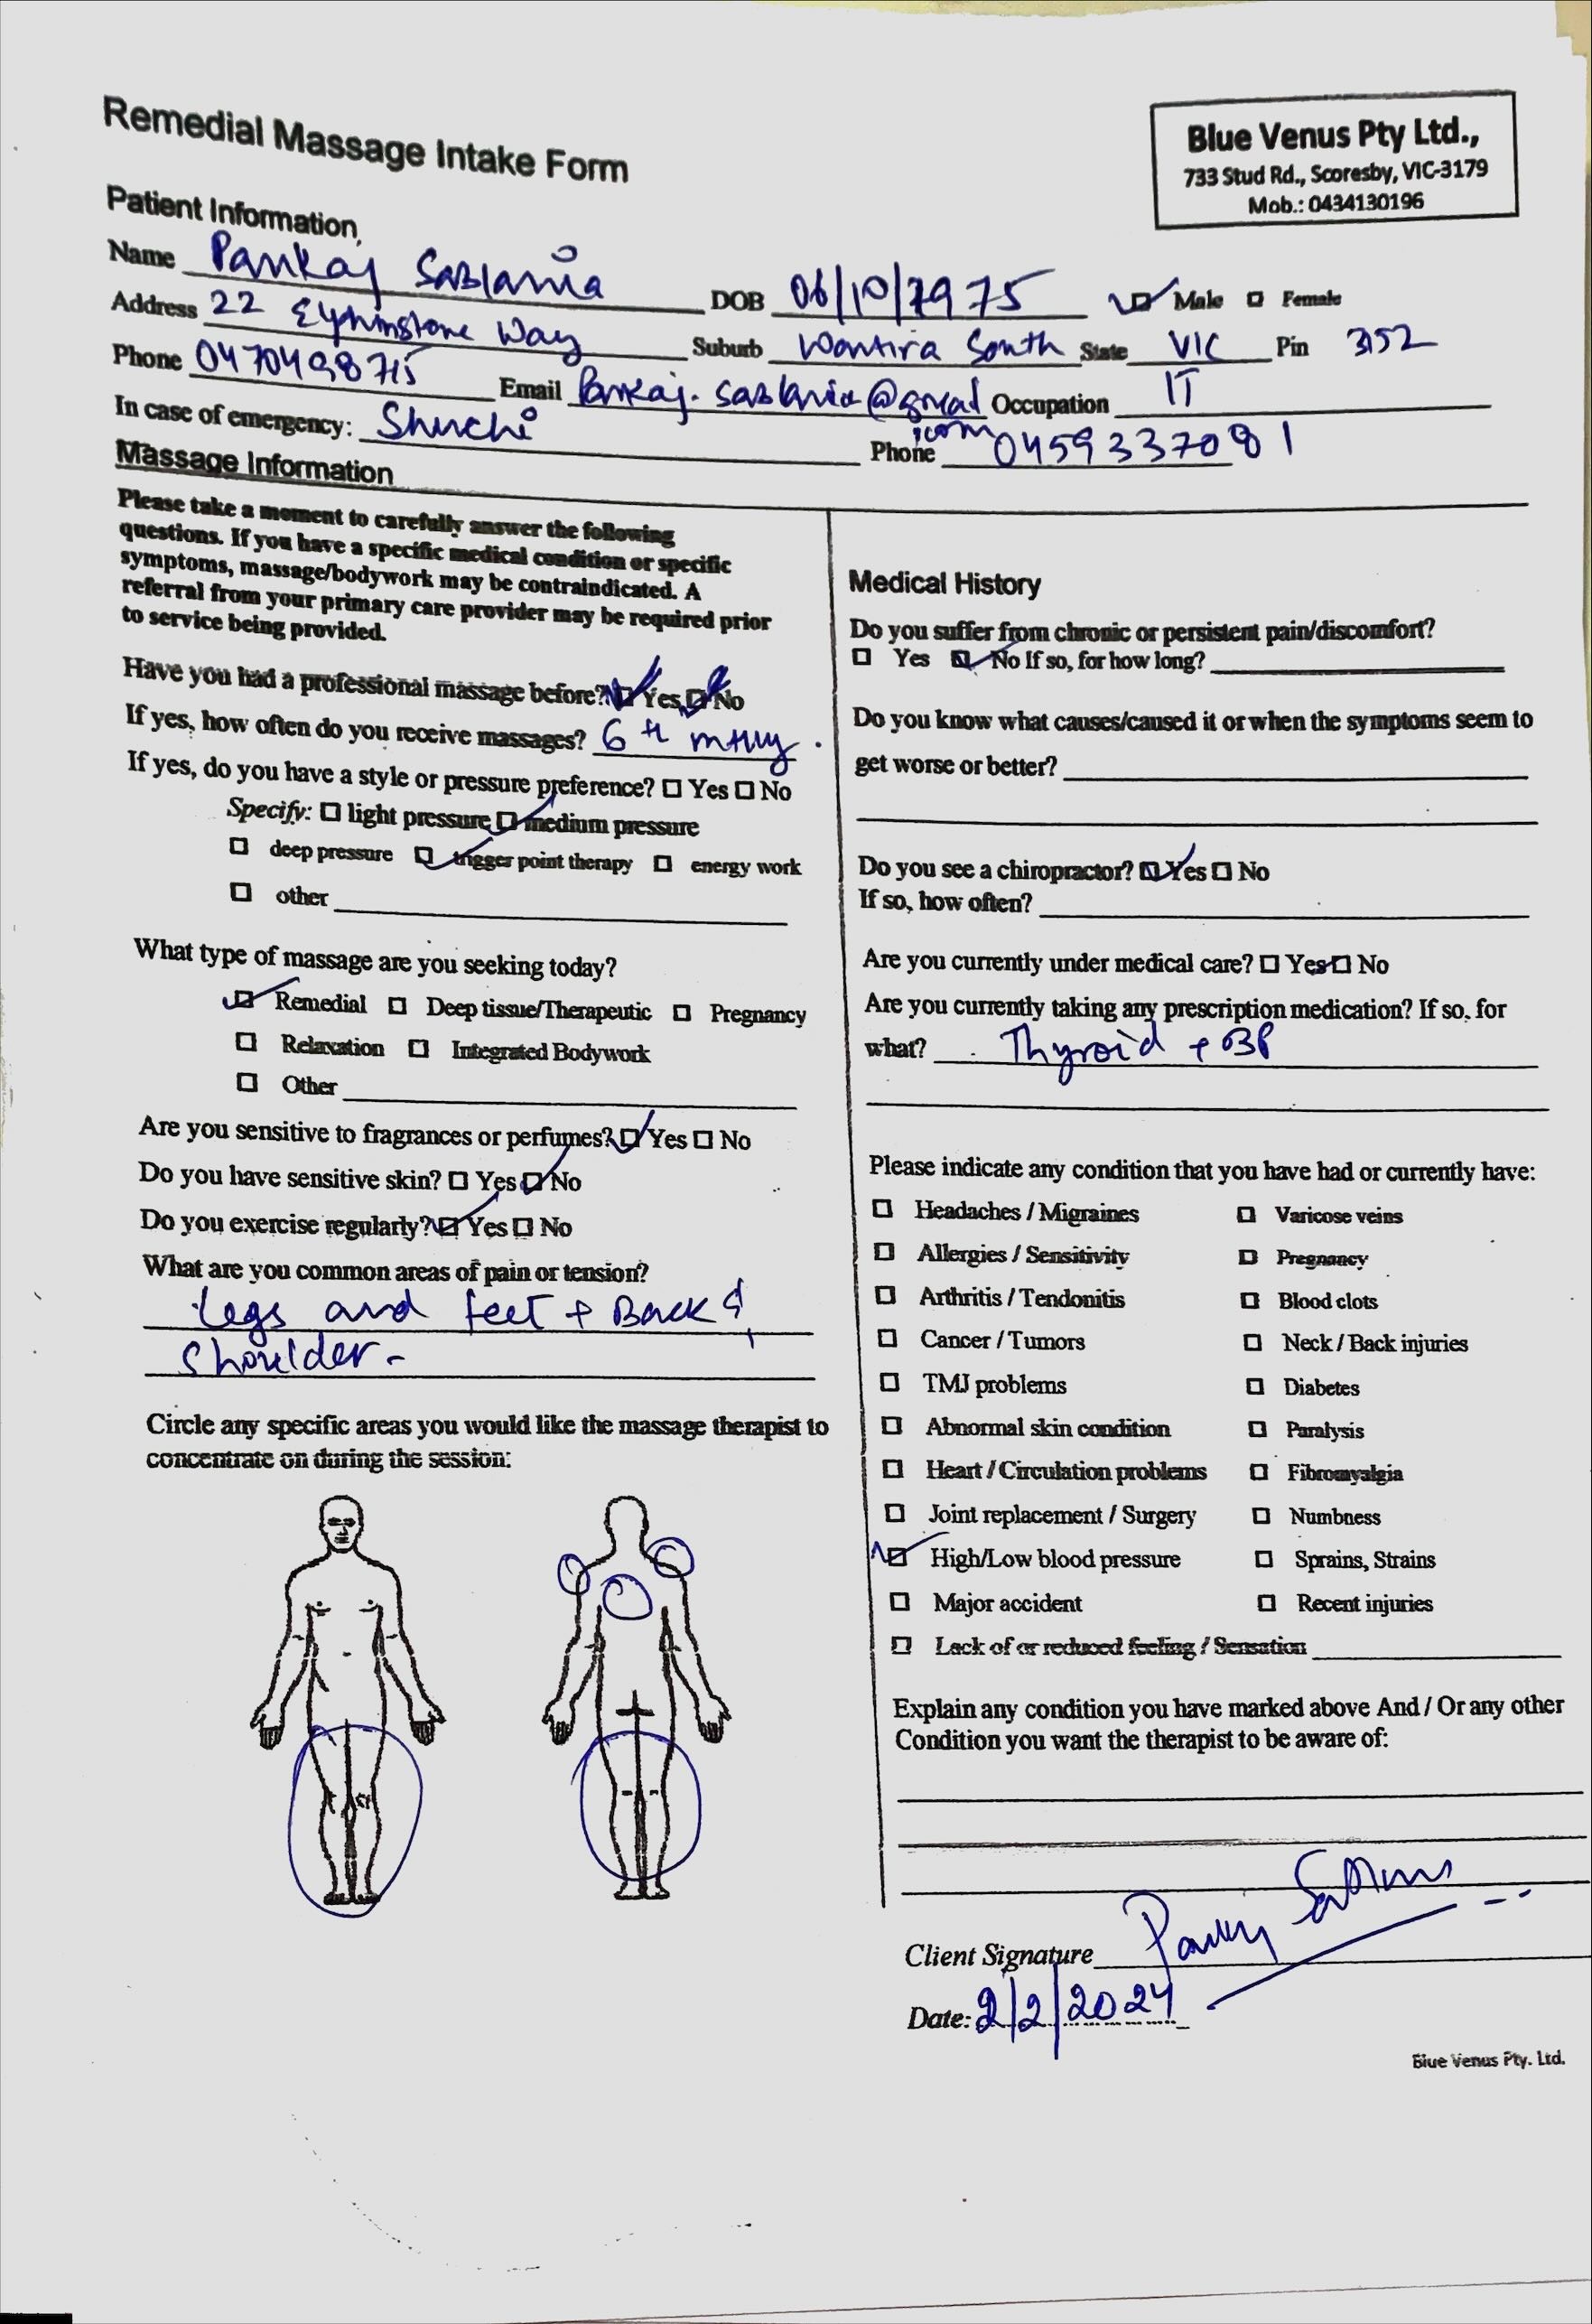 Remedial Massage Intake Form
Blue Venus Pty Ltd.,
733 Stud Rd., Scoresby, VIC-3179
Mob.: 0434130196
Patient Information
Name Pankaj Sablania DOB 06/10/1975 Male Female
Address 22 Way Suburb Wantira South State VIC Pin 3152
Phone 0470498715 Email Pankaj.sablania@gmail.com Occupation IT
In case of emergency: Shuchi Phone 0459337081
Massage Information
Please take a moment to carefully answer the following
questions. If you have a specific medical condition or specific
symptoms, massage/bodywork may be contraindicated. A
referral from your primary care provider may be required prior
to service being provided.
Have you had a professional massage before? Yes No
If yes, how often do you receive massages? 6
If yes, do you have a style or pressure preference? Yes No
Specify: light pressure medium pressure
deep pressure trigger point therapy energy work
other
What type of massage are you seeking today?
Remedial Deep tissue/Therapeutic Pregnancy
Relaxation Integrated Bodywork
Other
Are you sensitive to fragrances or perfumes? Yes No
Do you have sensitive skin? Yes No
Do you exercise regularly? Yes No
What are you common areas of pain or tension?
Legs and feet + Back &
Shoulder-
Circle any specific areas you would like the massage therapist to
concentrate on during the session:
Medical History
Do you suffer from chronic or persistent pain/discomfort?
Yes No If so, for how long?
Do you know what causes/caused it or when the symptoms seem to
get worse or better?
Do you see a chiropractor? Yes No
If so, how often?
Are you currently under medical care? Yes No
Are you currently taking any prescription medication? If so, for
what? Thyroid + BP
Please indicate any condition that you have had or currently have:
Headaches / Migraines Varicose veins
Allergies / Sensitivity Pregnancy
Arthritis / Tendonitis Blood clots
Cancer / Tumors Neck / Back injuries
TMJ problems Diabetes
Abnormal skin condition Paralysis
Heart / Circulation problems Fibromyalgia
Joint replacement / Surgery Numbness
High/Low blood pressure Sprains, Strains
Major accident Recent injuries
Lack of or reduced feeling / Sensation
Explain any condition you have marked above And / Or any other
Condition you want the therapist to be aware of:
Client Signature
Date: 2/2/2024
Blue Venus Pty. Ltd.